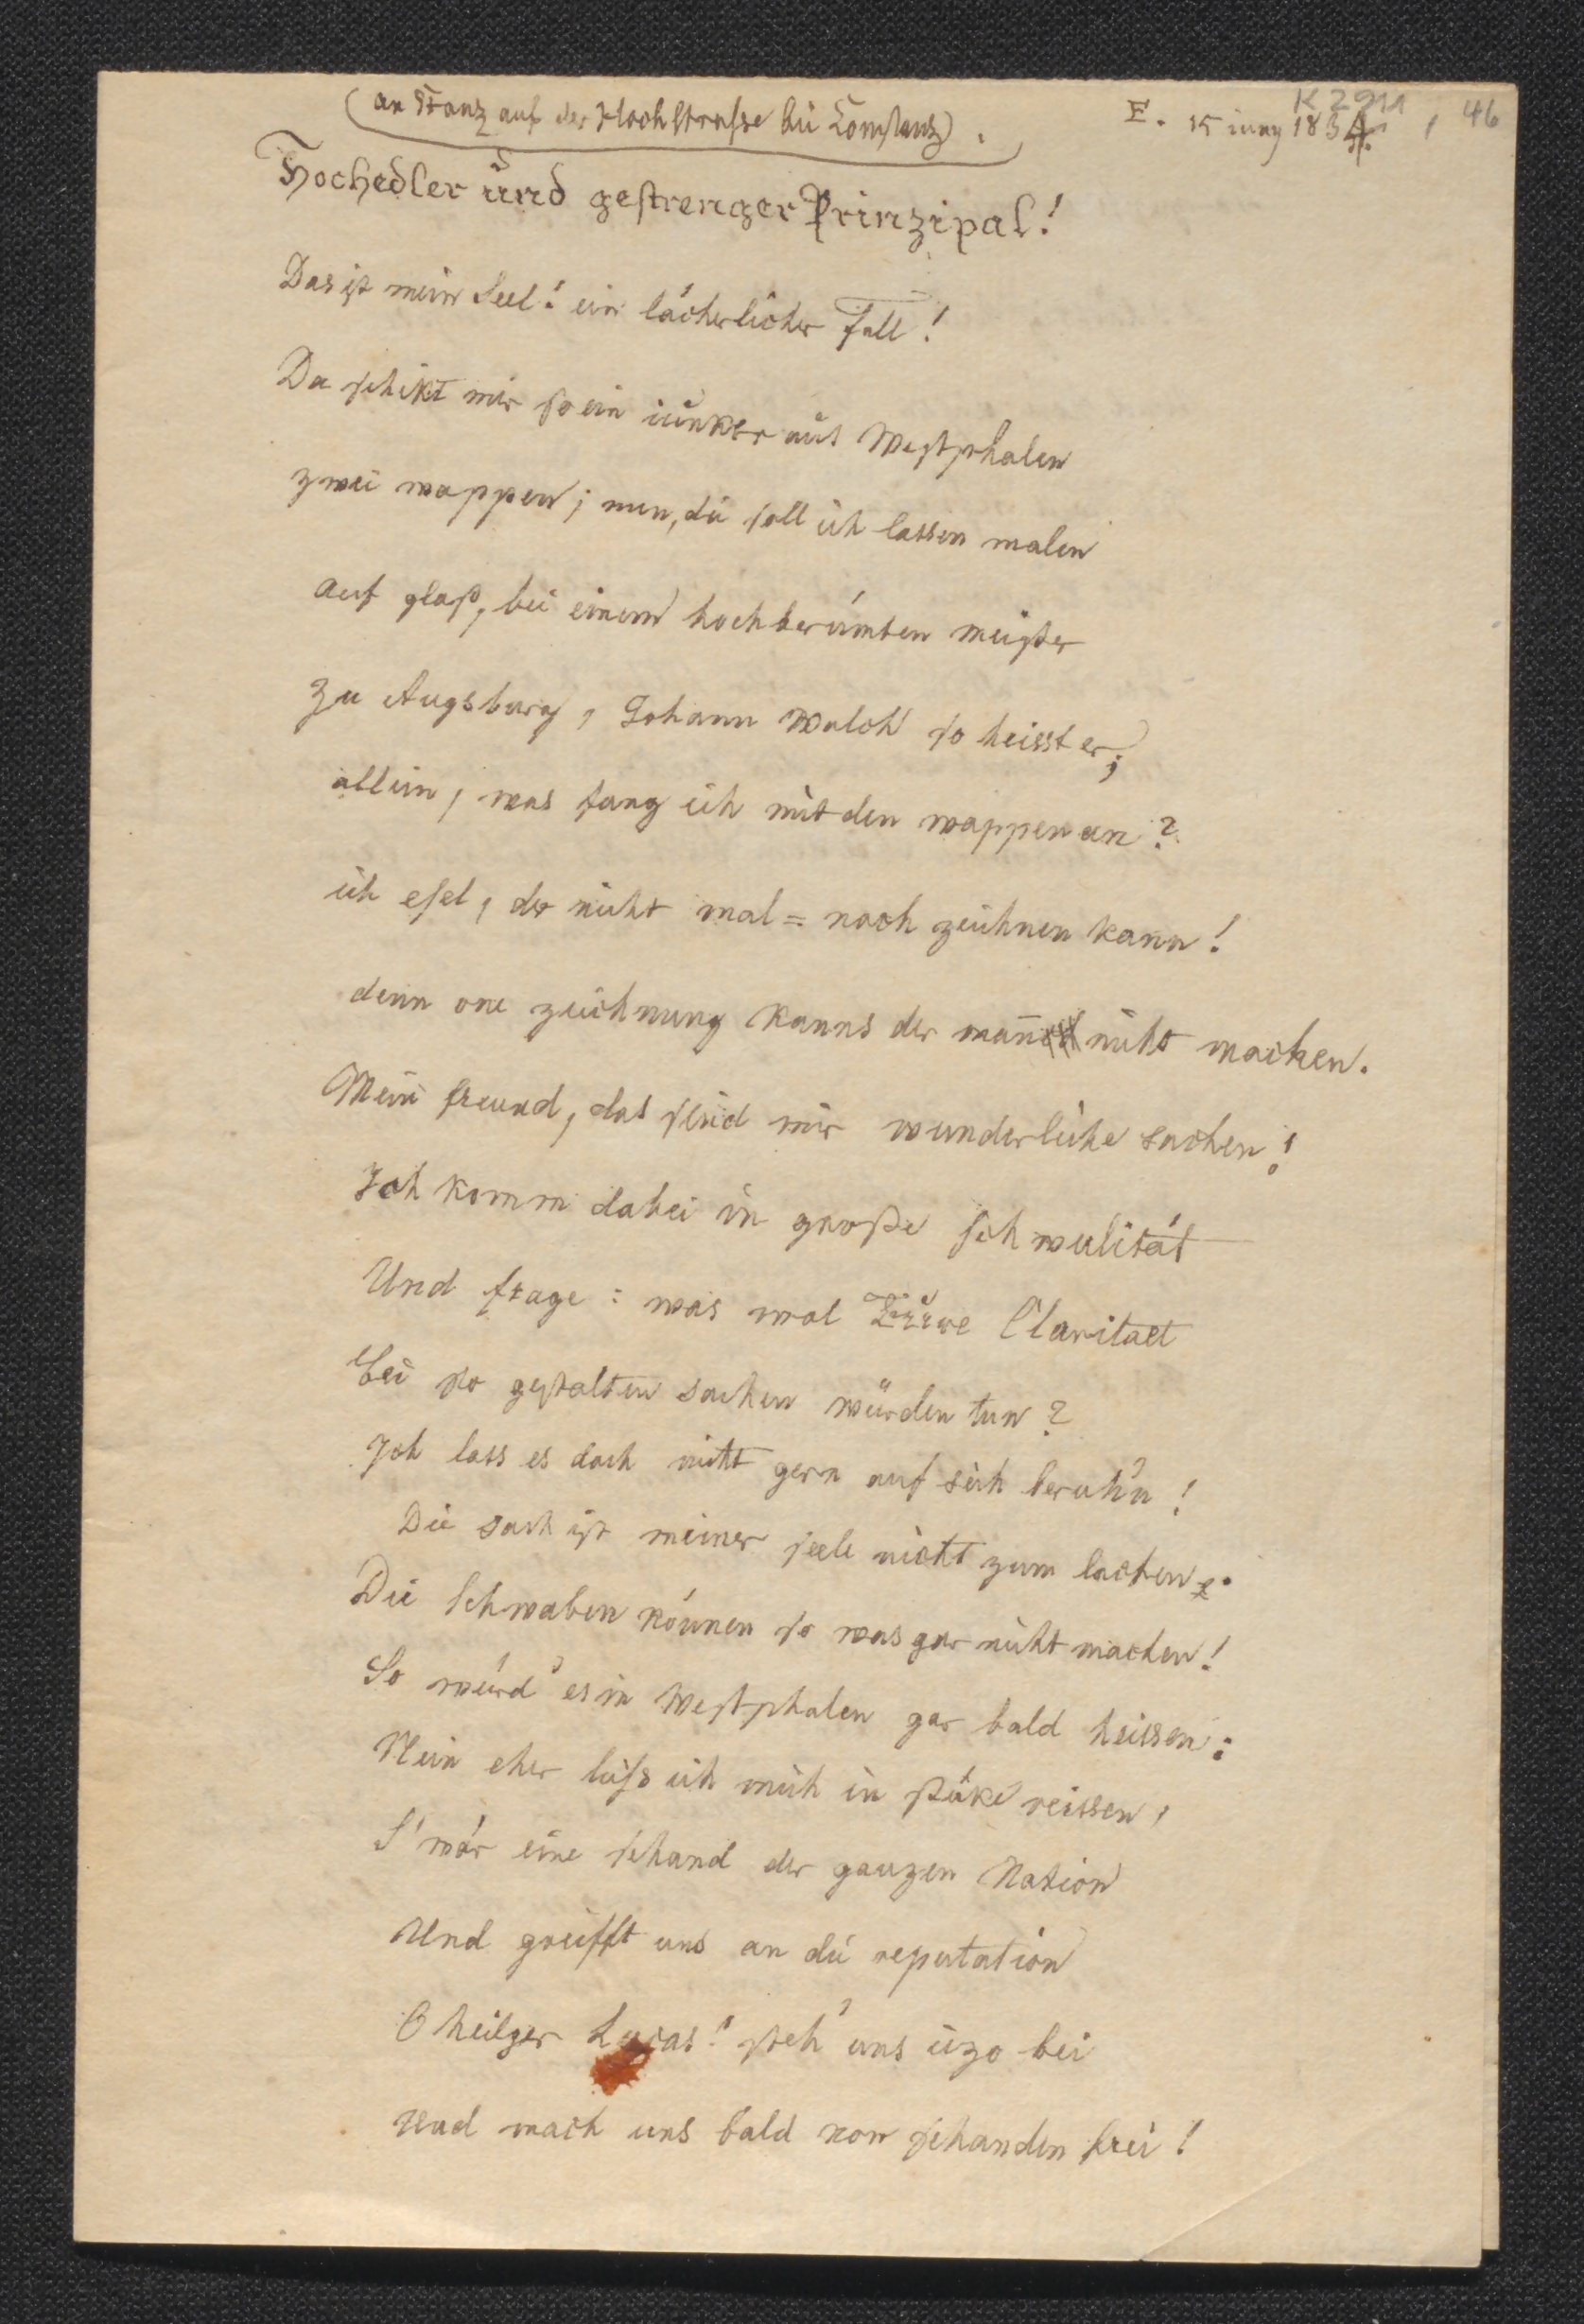 (an Franz auf der Hochstrasse bei Constanz).
E. 15 iuny 1834
K 2911, 46
Hochedler und gestrenger Prinzipal!
Das ist meiner Seel! ein lächerlicher Fall!
Da schikt mir so ein iunker aus Westphalen
zwei wappen; nun, die soll ich lassen malen
auf glaß, bei einem hochberümten meister
Zu Augsburg, Johann Walch so heisst er;
allein, was fang ich mit den wappen an?
ich esel, der nicht mal= noch zeichnen kann!
denn one zeichnung kanns der mann nicht machen.
Mein freund, das sind mir wunderliche sachen!
Ich komm dabei in große schwulität
Und frage: was wol Eure Claritaet
Bei so gestalten sachen würden tun?
Ich lass es doch nicht gern auf sich beruh'n!
Die sach ist meiner seele nicht zum lachen.
Die Schwaben können so was gar nicht machen!
So würd' es in Westphalen gar bald heissen:
Nein eher liess ich mich in stüke reissen,
S' wär eine schand der ganzen Nation
Und greifft uns an die reputation
O heilger Lucas! steh' uns iizo bei
Und mach uns bald von schanden frei!